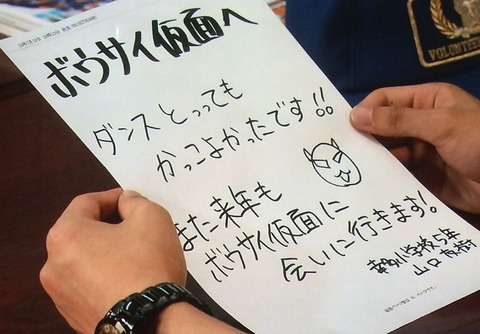 ボウサイ仮面へ
ダンスとっても
かっこよかったです!!
また来年も
ボウサイ仮面に
会いに行きます!
小学校5年
山口
VOLUNTEER